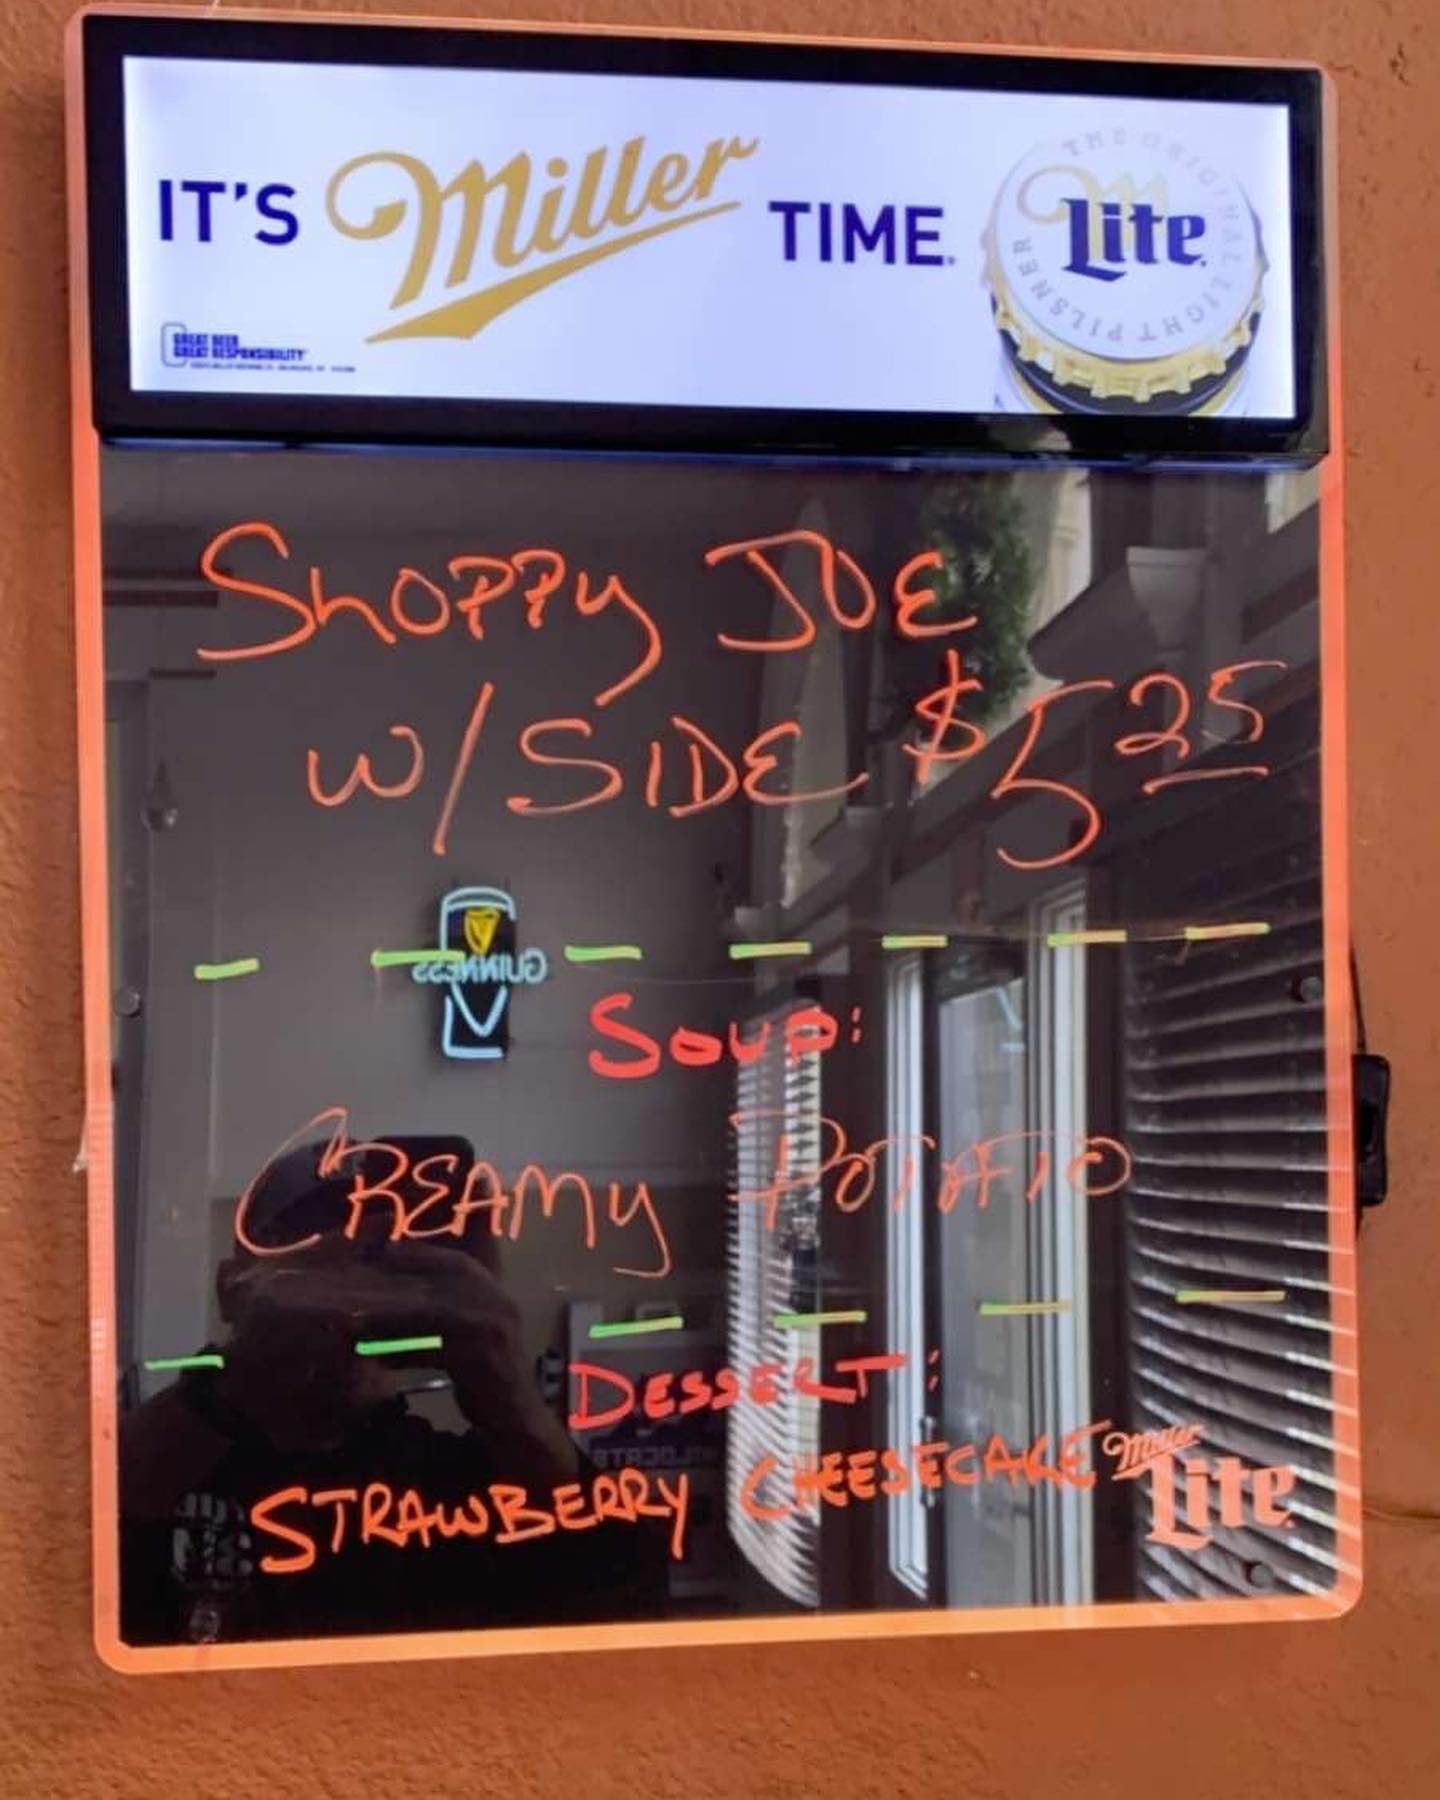 IT'S Miller TIME.
THE ORIGINAL LIGHT PILSNER
Lite
GREAT BEER
GREAT RESPONSIBILITY
ShOPPy JOE
W/SIDE $5 25
GUINNESS
SOUP:
CREAMY POTATO
DESSERT:
STRAWBERRY CHEESECAKE
Miller
Lite